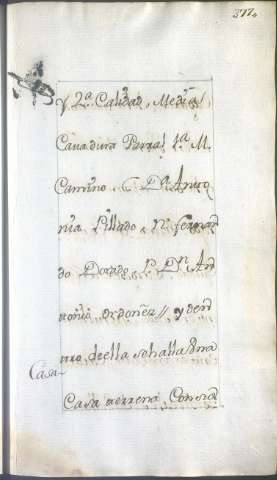 377.
y 2ª Calidad, Media
Cavadura Parral L. a M.
Camino, C Dª Anto
nia Pillado, N. fernan
do Dorado, P. Dn An
tonio ordoñez // y den
tro deella sehalla Una
Casa
Casa terrena Con su